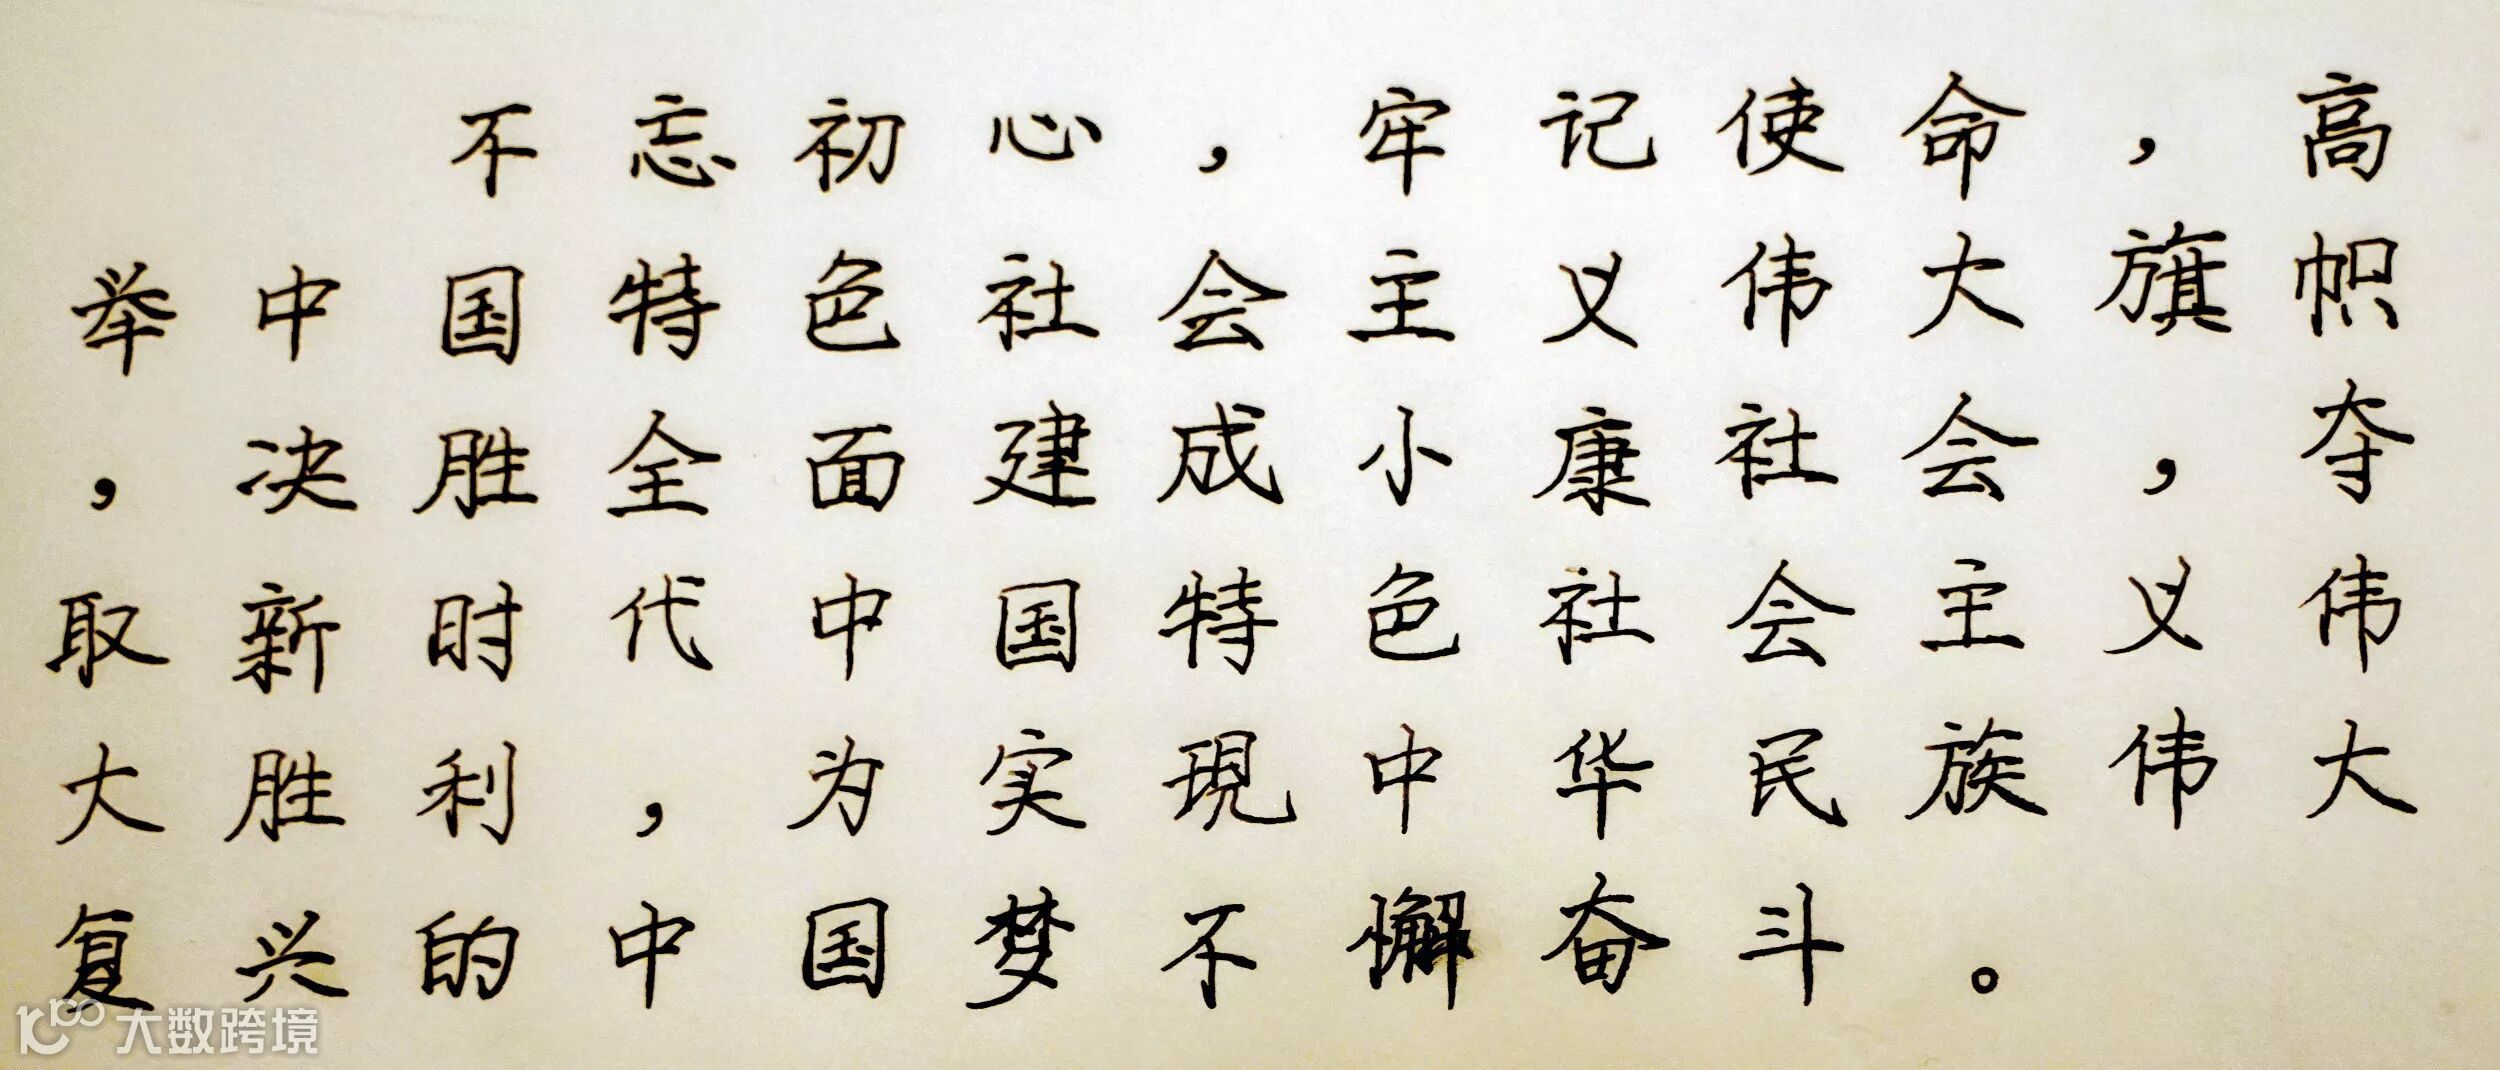 不忘初心，牢记使命，高
举中国特色社会主义伟大旗帜
，决胜全面建成小康社会，夺
取新时代中国特色社会主义伟
大胜利，为实现中华民族伟大
复兴的中国梦不懈奋斗。
大数跨境